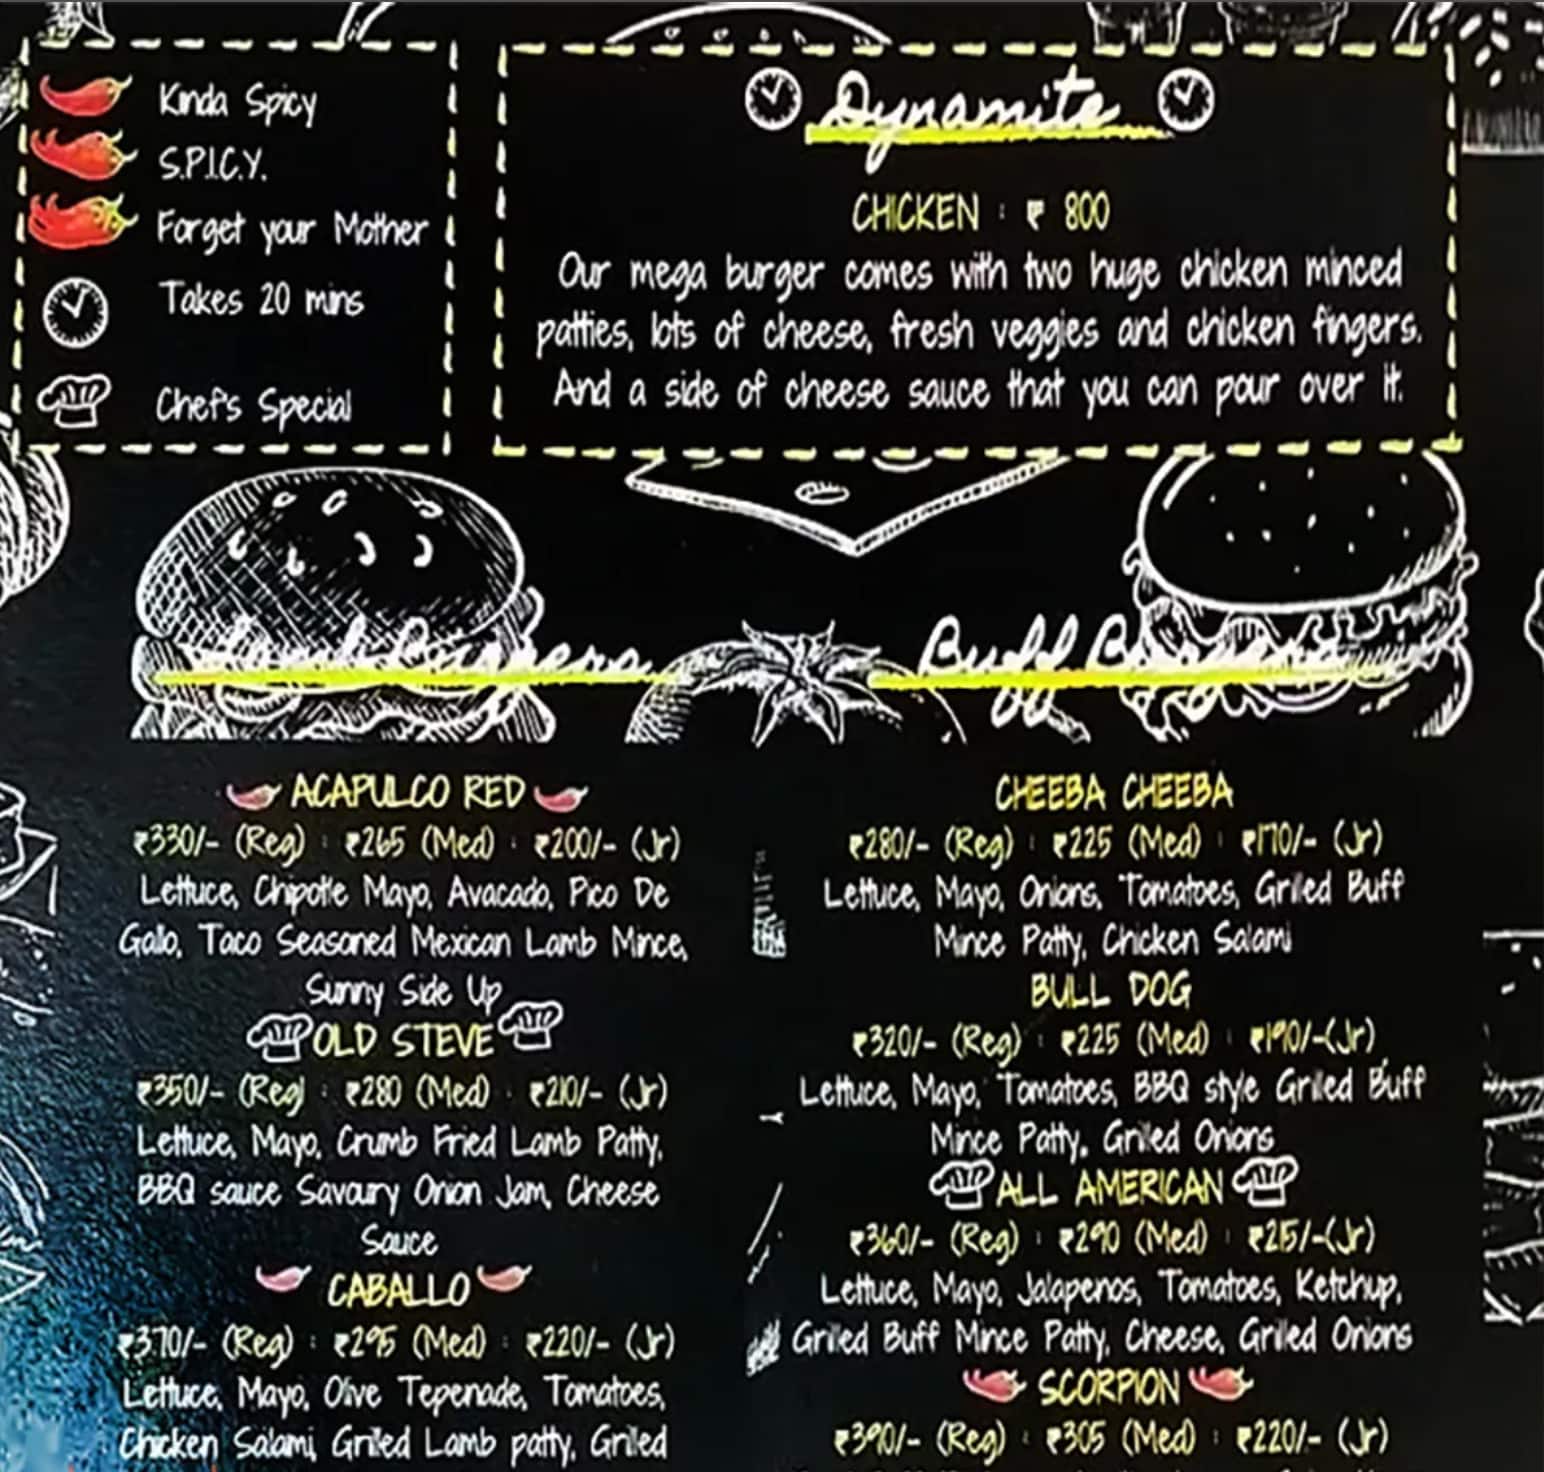 Kinda Spicy
S.P.I.C.Y.
Forget your Mother
Takes 20 mins
Chef's Special
Dynamite
CHICKEN : ₹ 800
Our mega burger comes with two huge chicken minced
patties, lots of cheese, fresh veggies and chicken fingers.
And a side of cheese sauce that you can pour over it.
Lamb Burgers
ACAPULCO RED
₹330/- (Reg) : ₹265 (Med) : ₹200/- (Jr)
Lettuce, Chipotle Mayo, Avacado, Pico De
Gallo, Taco Seasoned Mexican Lamb Mince,
Sunny Side Up
OLD STEVE
₹350/- (Reg) : ₹280 (Med) : ₹210/- (Jr)
Lettuce, Mayo, Crumb Fried Lamb Patty,
BBQ sauce Savoury Onion Jam, Cheese
Sauce
CABALLO
₹370/- (Reg) : ₹295 (Med) : ₹220/- (Jr)
Lettuce, Mayo, Olive Tepenade, Tomatoes,
Chicken Salami, Grilled Lamb patty, Grilled
Buff Burgers
CHEEBA CHEEBA
₹280/- (Reg) : ₹225 (Med) : ₹170/- (Jr)
Lettuce, Mayo, Onions, Tomatoes, Grilled Buff
Mince Patty, Chicken Salami
BULL DOG
₹320/- (Reg) : ₹225 (Med) : ₹190/-(Jr)
Lettuce, Mayo, Tomatoes, BBQ style Grilled Buff
Mince Patty, Grilled Onions
ALL AMERICAN
₹360/- (Reg) : ₹290 (Med) : ₹215/-(Jr)
Lettuce, Mayo, Jalapenos, Tomatoes, Ketchup,
Grilled Buff Mince Patty, Cheese, Grilled Onions
SCORPION
₹390/- (Reg) : ₹305 (Med) : ₹220/- (Jr)